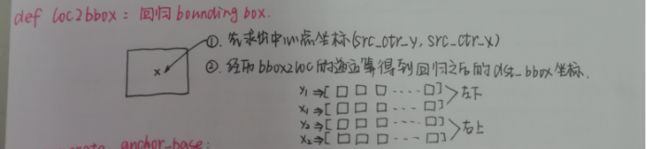 def loc2bbox: 回归 bounding box.
①. 先求出中心点坐标(src_ctr_y, src_ctr_x)
②. 经历bbox2loc的逆运算得到回归之后的dst_bbox坐标.
x
y₁ ⇒ [ □ □ □ ---- □]
x₁ ⇒ [ □ □ □ ---- □] > 左下
y₂ ⇒ [ □ □ □ ---- □]
x₂ ⇒ [ □ □ □ ---- □] > 右上
anchor_base: